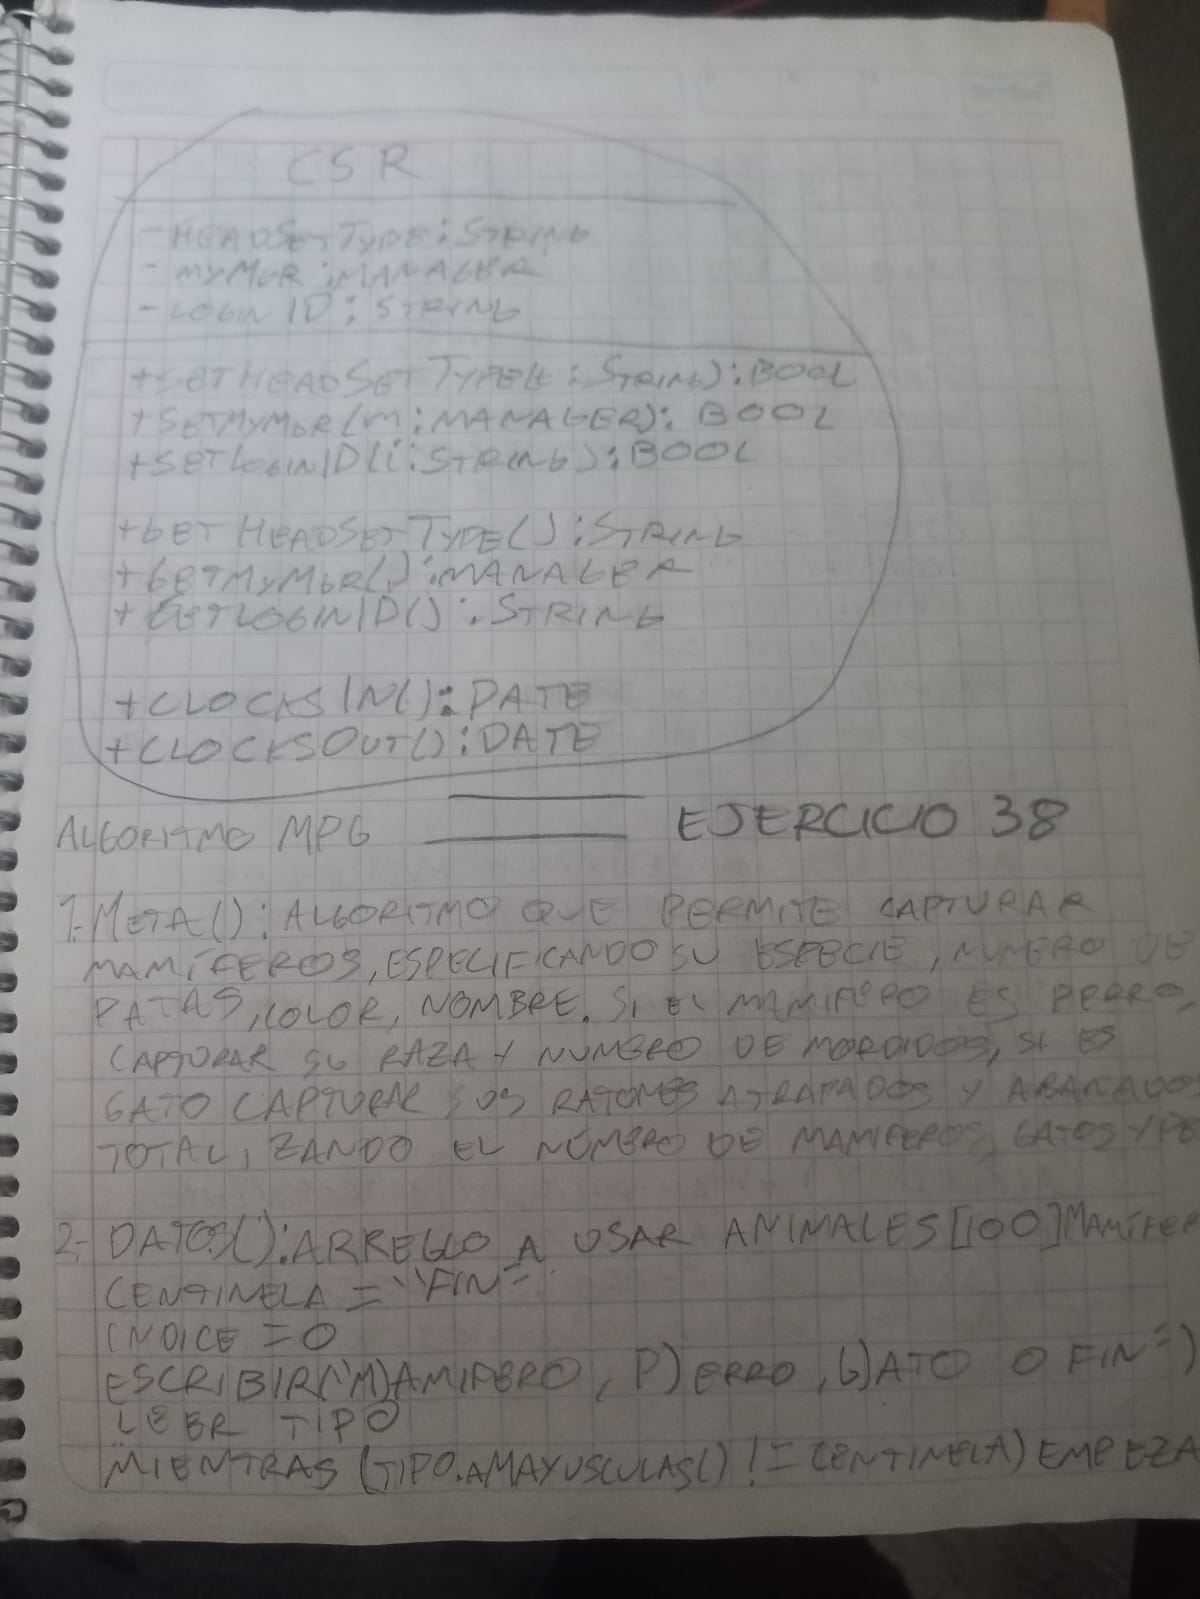 CSR
- HEADSETTYPE: STRING
- MYMGR: MANAGER
- LOGIN ID: STRING
+SETHEADSETTYPE(t: STRING): BOOL
+SETMYMGR(m: MANAGER): BOOL
+SETLOGINID(i: STRING): BOOL
+GETHEADSETTYPE(): STRING
+GETMYMGR(): MANAGER
+GETLOGINID(): STRING
+CLOCKSIN(): DATE
+CLOCKSOUT(): DATE
ALGORITMO MPG EJERCICIO 38
1.-META(): ALGORITMO QUE PERMITE CAPTURAR
MAMÍFEROS, ESPECIFICANDO SU ESPECIE, NUMERO DE
PATAS, COLOR, NOMBRE. SI EL MAMIFERO ES PERRO,
CAPTURAR SU RAZA Y NUMERO DE MORDIDOS, SI ES
GATO CAPTURAR SUS RATONES ATRAPADOS Y
TOTALIZANDO EL NUMERO DE MAMIFEROS, GATOS Y PE
2.- DATOS(): ARREGLO A USAR ANIMALES[100] MAMIFER
CENTINELA = "FIN"
INDICE = 0
ESCRIBIR("M)AMIFERO, P)ERRO, G)ATO O FIN")
LEER TIPO
MIENTRAS (TIPO.AMAYUSCULAS() != CENTINELA) EMPEZA